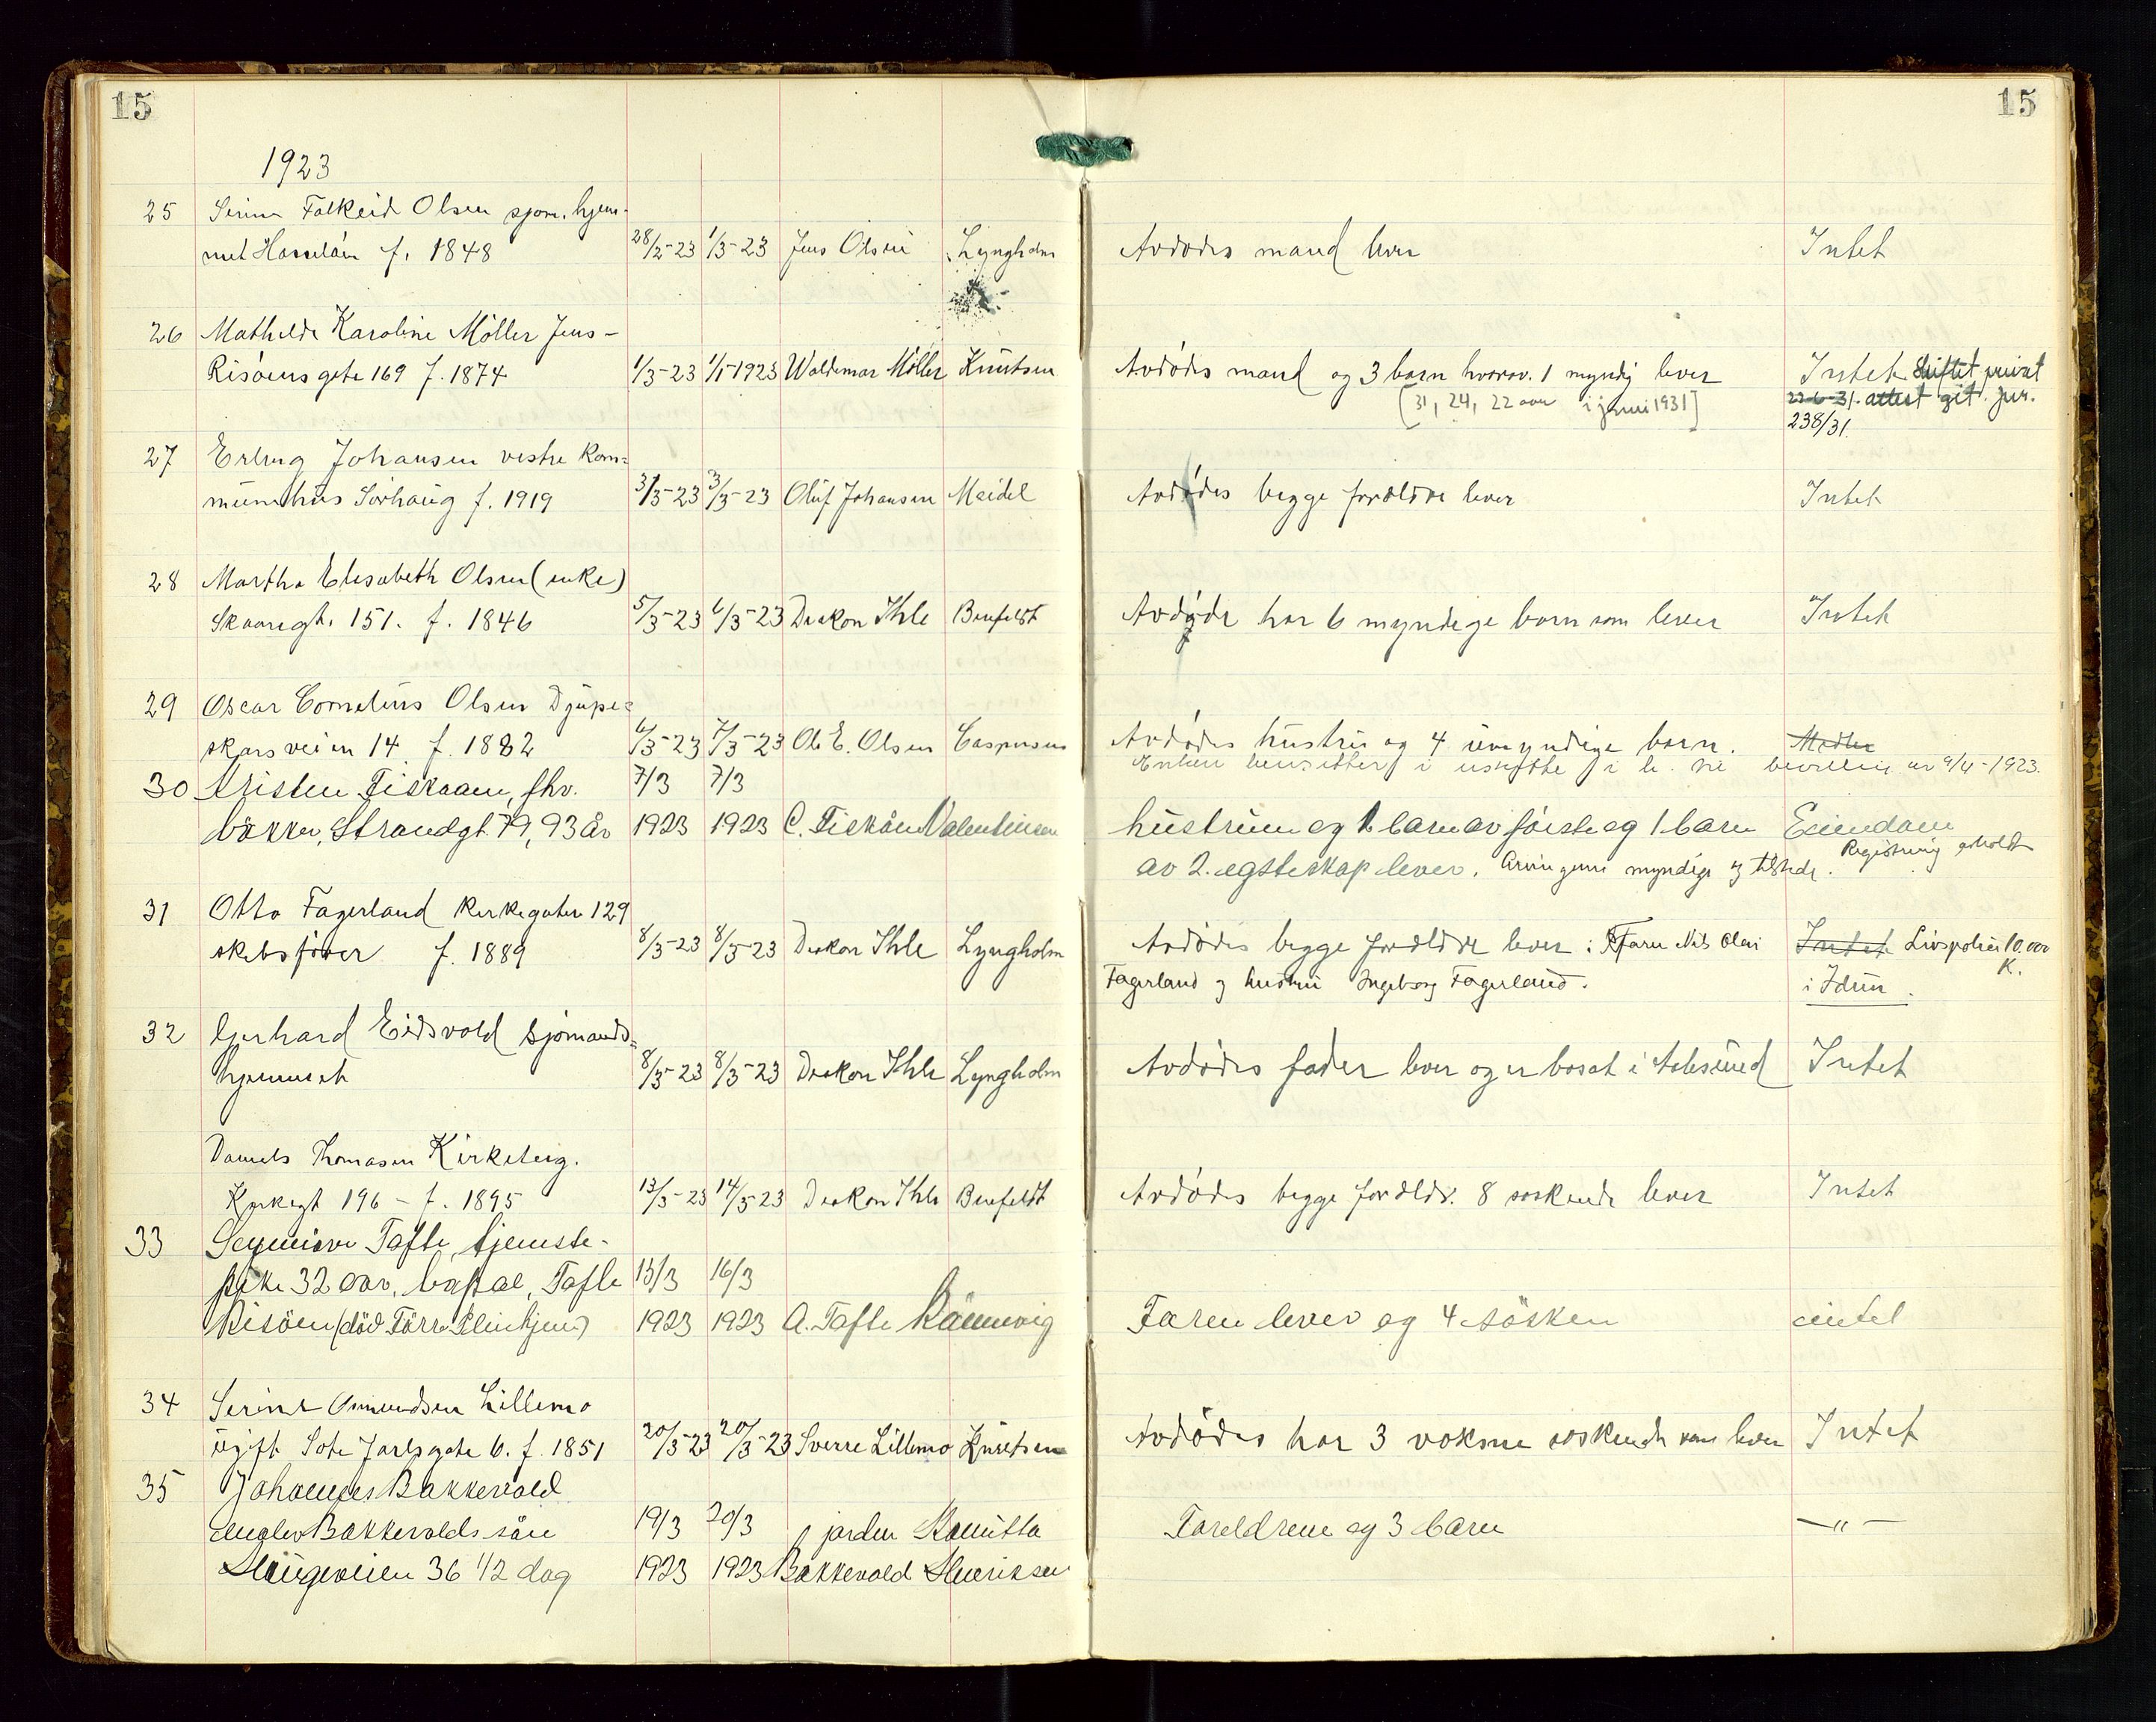 15
15
1923
25 Serine Falkeid Olsen sjøm. hjem-
met Hasseløen f. 1848 28/2-23 1/3-23 Jens Olsen Lyngholm Avdødes mand lever Intet
26 Mathilde Karoline Möller Jens-
Risøens gate 169 f. 1874 1/3-23 1/5-1923 Waldemar Möller Knutsen Avdødes mand og 3 barn hvorav 1 myndig lever Intet Skiftet privat
[31, 24, 22 aar i juni 1931] 22-6-31. attest git. jur.
238/31.
27 Erling Johansen vestre Kom-
munehus Sørhaug f. 1919 3/3-23 3/3-23 Oluf Johansen Meidel Avdødes begge forældre lever Intet
28 Martha Elisabeth Olsen (enke)
Skaaregt. 151. f. 1846 5/3-23 6/3-23 Diakon Ihle Benfeldt Avdøde har 6 myndige barn som lever Intet
29 Oscar Cornelius Olsen Djupe-
skarsveien 14 f. 1882 6/3-23 7/3-23 Ol. E. Olsen Caspersen Avdødes hustru og 4 umyndige barn.
Enken hensitter i uskifte i h. til bevilling av 9/4-1923.
30 Kristen Fiskaaen, fhv. 7/3 7/3
bakker, Strandgt. 79, 93 år 1923 1923 C. Fiskåen Valentinsen hustruen og 1 barn av første og 1 barn Eiendom
av 2. egteskap lever. Arvingene myndige og tilstede. Registrering avholdt
31 Otto Fagerland Kirkegaten 129
skibsfører f. 1889 8/3-23 8/3-23 Diakon Ihle Lyngholm Avdødes begge forældre lever: Faren Nils Olai Intet Livspolice 10.000
K.
Fagerland og hustru Ingeborg Fagerland. i Idun.
32 Gerhard Eidsvold Sjømands-
hjemmet 8/3-23 8/3-23 Diakon Ihle Lyngholm Avdødes fader lever og er bosat i Aalesund Intet
Daniels Thomasen Kirksteig.
Kirkegt 196 - f. 1895 13/3-23 14/3-23 Diakon Ihle Benfeldt Avdødes begge forældr. 8 søskende lever Intet
33 Tafte, tjeneste-
pike 32 aar, Tafte 15/3 16/3
Risöen (död Förre Pleiehjem) 1923 1923 A. Tafte Rännevig Faren lever og 4 søsken intet
34 Serine Omundsen Lillemo
ugift Sote Jarlsgate 6. f. 1851 20/3-23 20/3-23 Sverre Lillemo Knutsen Avdødes har 3 voksne søskende som lever Intet
35 Johannes Bakkevold
Bakkevolds sön 19/3 20/3 jordm Kamitta Foreldrene og 3 barn —"—
Haugeveien 36 1/2 dag 1923 1923 Bakkevold Henriksen